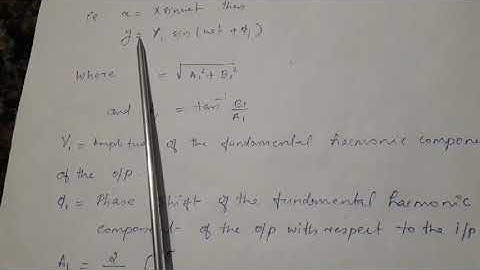 ie x = X sinωt then
y = Y₁ sin(ωt + φ₁)
where = √A₁² + B₁²
and = tan⁻¹ B₁/A₁
Y₁ = Amplitude of the fundamental harmonic compone
of the o/p.
φ₁ = Phase shift of the fundamental harmonic
component of the o/p with respect to the i/p
A₁ = 2